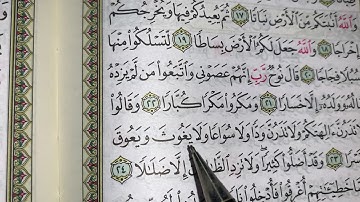 وَٱللَّهُ أَنۢبَتَكُم مِّنَ ٱلْأَرْضِ نَبَاتًا ١٧ ثُمَّ يُعِيدُكُمْ فِيهَا وَيُخْرِجُكُمْ
إِخْرَاجًا ١٨ وَٱللَّهُ جَعَلَ لَكُمُ ٱلْأَرْضَ بِسَاطًا ١٩ لِّتَسْلُكُوا۟ مِنْهَا
سُبُلًا فِجَاجًا ٢٠ قَالَ نُوحٌ رَّبِّ إِنَّهُمْ عَصَوْنِى وَٱتَّبَعُوا۟ مَن لَّمْ يَزِدْهُ
مَالُهُۥ وَوَلَدُهُۥٓ إِلَّا خَسَارًا ٢١ وَمَكَرُوا۟ مَكْرًا كُبَّارًا ٢٢ وَقَالُوا۟
لَا تَذَرُنَّ ءَالِهَتَكُمْ وَلَا تَذَرُنَّ وَدًّا وَلَا سُوَاعًا وَلَا يَغُوثَ وَيَعُوقَ
وَنَسْرًا ٢٣ وَقَدْ أَضَلُّوا۟ كَثِيرًا وَلَا تَزِدِ ٱلظَّٰلِمِينَ إِلَّا ضَلَٰلًا ٢٤
خَطِيٓـَٰٔتِهِمْ أُغْرِقُوا۟ فَأُدْخِلُوا۟